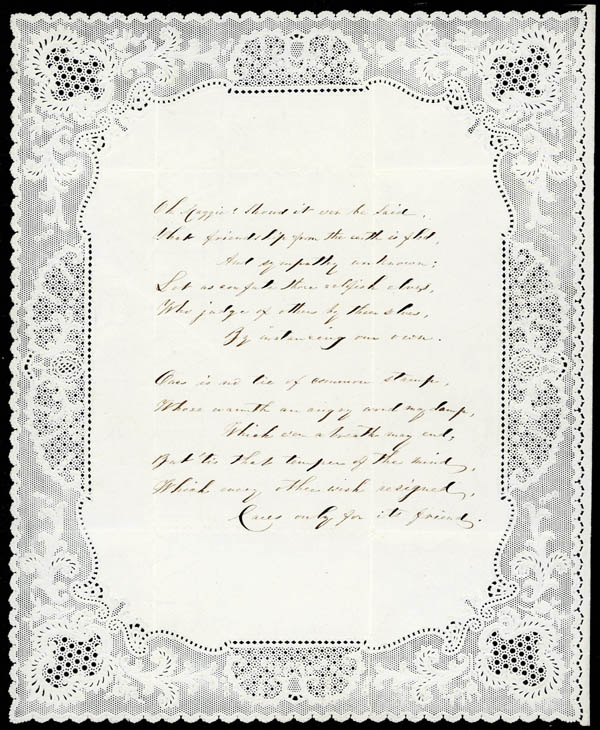 Oh Maggie! Should it ever be said,
That friendship from the earth is fled,
And sympathy unknown;
Let us confute those selfish elves,
Who judge of others by themselves,
By instancing our own.
Ours is no tie of common stamp,
Whose warmth an angry word may damp,
Which even a breath may end,
But 'tis that temper of the mind,
Which every other wish resigned,
Cares only for its friend.